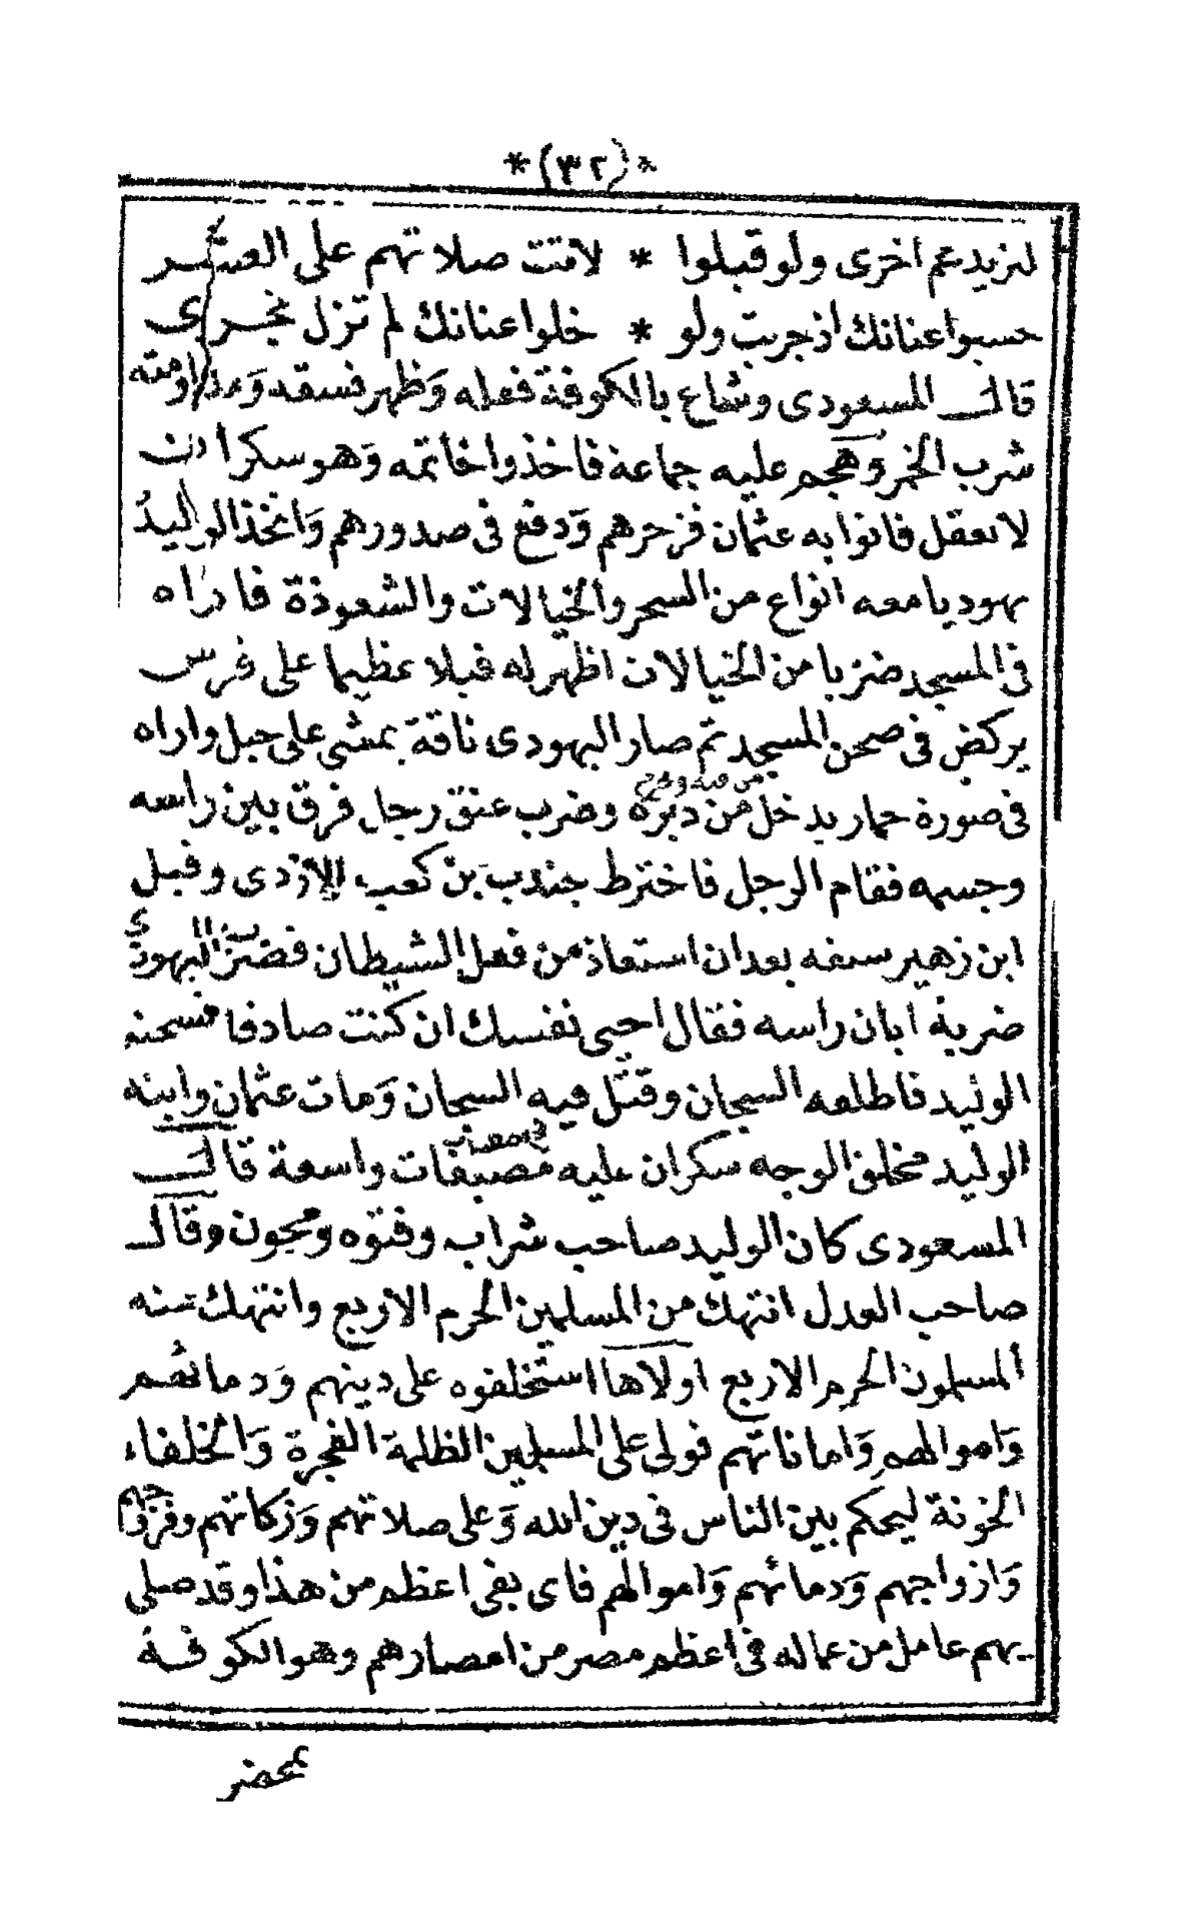 *(٣٢)*
ليزيدهم اخرى ولو قبلوا * لاتت صلاتهم على العشر
حسبوا عنانك اذ جريت ولو * خلوا عنانك لم تزل تجرى
قال المسعودى وشاع بالكوفة فعله وظهر فسقه ومداومته
شرب الخمر وهجم عليه جماعة فاخذوا خاتمه وهو سكران
لا يعقل فاتوا به عثمان فزجرهم ودفع فى صدورهم واتخذ الوليد
يهوديا معه انواع من السحر والخيالات والشعوذة فاراه
فى المسجد ضربا من الخيالات اظهر له فيلا عظيما على فرس
يركض فى صحن المسجد ثم صار اليهودى ناقة يمشى على جبل واراه
فى صورة حمار يدخل من دبره وضرب عنق رجل فرق بين راسه
من فيه ويخرج
وجسمه فقام الرجل فاخترط جندب بن كعب الازدى وقيل
ابن زهير سيفه بعد ان استعاذ من فعل الشيطان فضرب اليهودى
ضربة ابان راسه فقال احيى نفسك ان كنت صادقا فسجنه
الوليد فاطلعه السجان وقتل فيه السجان ومات عثمان وابنه
الوليد مخلق الوجه سكران عليه مصبغات واسعة قال
المسعودى كان الوليد صاحب شراب وفتوه ومجون وقال
صاحب العدل انتهك من المسلمين الحرم الاربع وانتهك منه
المسلمون الحرم الاربع اولاها استخلفوه على دينهم ودمائهم
واموالهم واماناتهم فولى على المسلمين الظلمة الفجرة والخلفاء
الخونة ليحكم بين الناس فى دين الله وعلى صلاتهم وزكاتهم وفروجهم
وازواجهم ودمائهم واموالهم فاى بغى اعظم من هذا وقد صلى
بهم عامل من عماله فى اعظم مصر من امصارهم وهو الكوفة
بمحضر